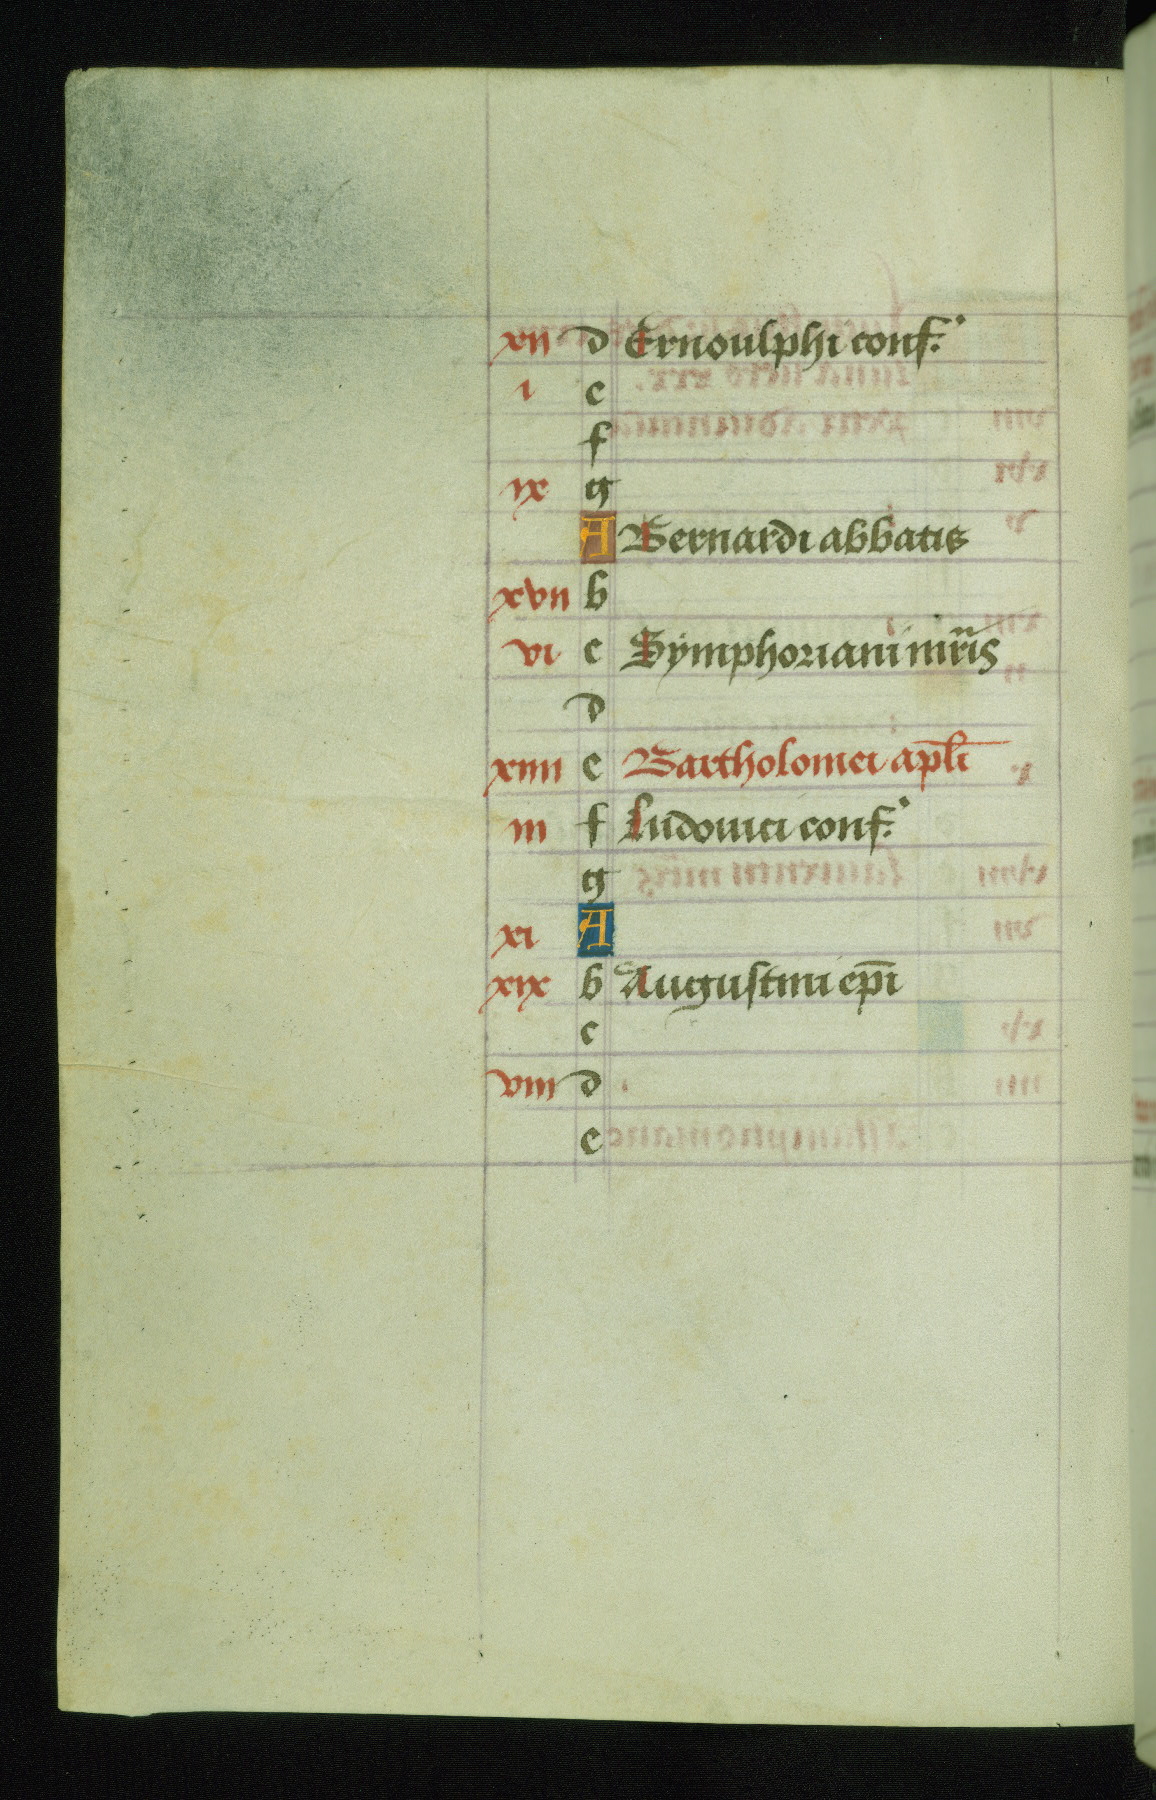 xii d Ernoulphi conf.
i e
f
ix g
A Bernardi abbatis
xvii b
vi c Symphoriani mr̃is
d
xiiii e Bartholomei apl̃i
iii f Ludouici conf.
g
xi A
xix b Augustini ep̃i
c
viii d
e